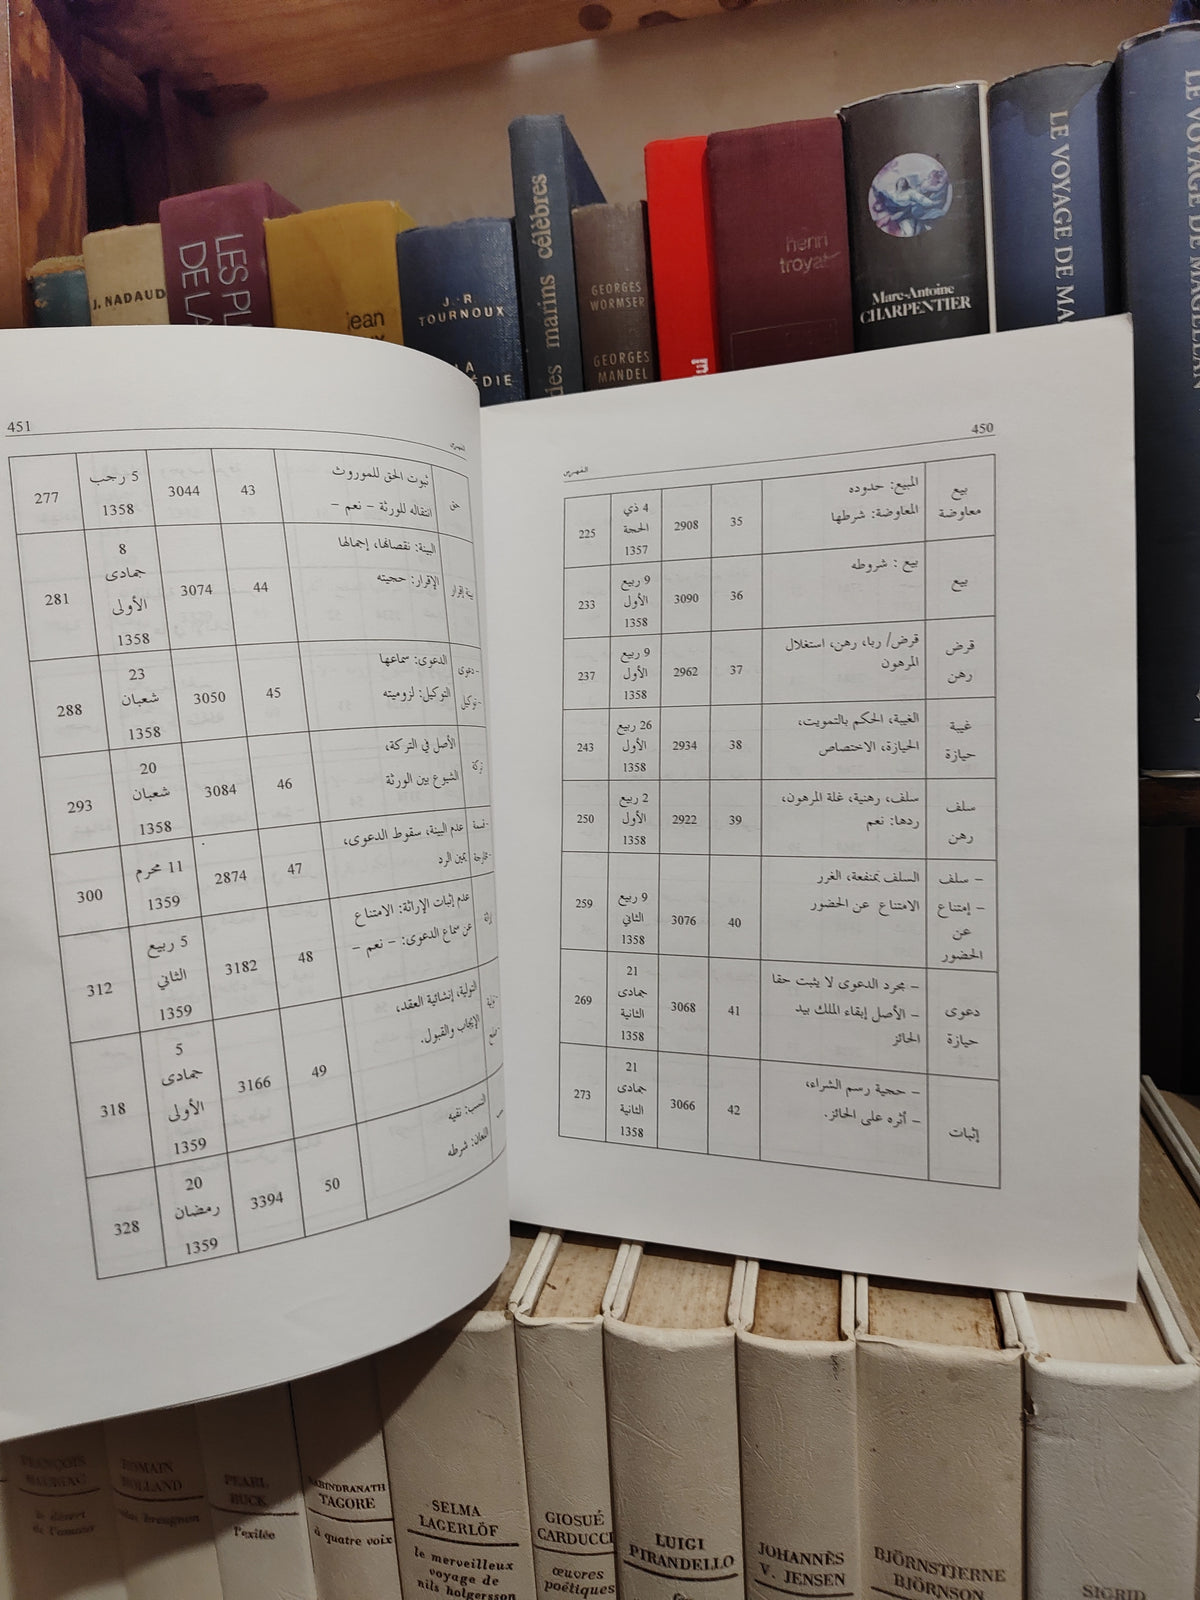 J. NADAUD
LES PL
DE LA
jean
J.-R.
TOURNOUX
LA
ÉDIE
des marins célèbres
GEORGES
WORMSER
GEORGES
MANDEL
m
henri
troyat
Marc-Antoine
CHARPENTIER
LE VOYAGE DE MAG
LE VOYAGE DE MAGELLAN
450
الفهرس
بيع
معاوضة
المبيع: حدوده
المعاوضة: شرطها
35
2908
4 ذي
الحجة
1357
225
بيع
بيع : شروطه
36
3090
9 ربيع
الأول
1358
233
قرض
رهن
قرض/ ربا، رهن، استغلال
المرهون
37
2962
9 ربيع
الأول
1358
237
غيبة
حيازة
الغيبة، الحكم بالتمويت،
الحيازة، الاختصاص
38
2934
26 ربيع
الأول
1358
243
سلف
رهن
سلف، رهنية، غلة المرهون،
ردها: نعم
39
2922
2 ربيع
الأول
1358
250
– سلف
– إمتناع
عن
الحضور
السلف بمنفعة، الغرر
الامتناع عن الحضور
40
3076
9 ربيع
الثاني
1358
259
دعوى
حيازة
– مجرد الدعوى لا يثبت حقا
– الأصل إبقاء الملك بيد
الحائز
41
3068
21
جمادى
الثانية
1358
269
إثبات
– حجية رسم الشراء،
– أثره على الحائز.
42
3066
21
جمادى
الثانية
1358
273
451
الفهرس
حق
ثبوت الحق للموروث
انتقاله للورثة – نعم –
43
3044
5 رجب
1358
277
بينة إقرار
البينة: نقصانها، إجمالها
الإقرار: حجيته
44
3074
8
جمادى
الأولى
1358
281
- دعوى
- توكيل
الدعوى: سماعها
التوكيل: لزوميته
45
3050
23
شعبان
1358
288
تركة
الأصل في التركة،
الشيوع بين الورثة
46
3084
20
شعبان
1358
293
- قسمة
- مخارجة
عدم البينة، سقوط الدعوى،
يمين الرد
47
2874
11 محرم
1359
300
إراثة
عدم إثبات الإراثة: الامتناع
عن سماع الدعوى: – نعم –
48
3182
5 ربيع
الثاني
1359
312
- تولية
التولية، إنشائية العقد،
الإيجاب والقبول.
49
3166
5
جمادى
الأولى
1359
318
النسب: نفيه
اللعان: شرطه
50
3394
20
رمضان
1359
328
FRANÇOIS
MAURIAC
le désert
de l'amour
ROMAIN
ROLLAND
colas breugnon
PEARL
BUCK
l'exilée
RABINDRANATH
TAGORE
à quatre voix
SELMA
LAGERLÖF
le merveilleux
voyage de
nils holgersson
GIOSUÉ
CARDUCCI
œuvres
poétiques
LUIGI
PIRANDELLO
JOHANNÈS
V. JENSEN
BJÖRNSTJERNE
BJÖRNSON
SIGRID